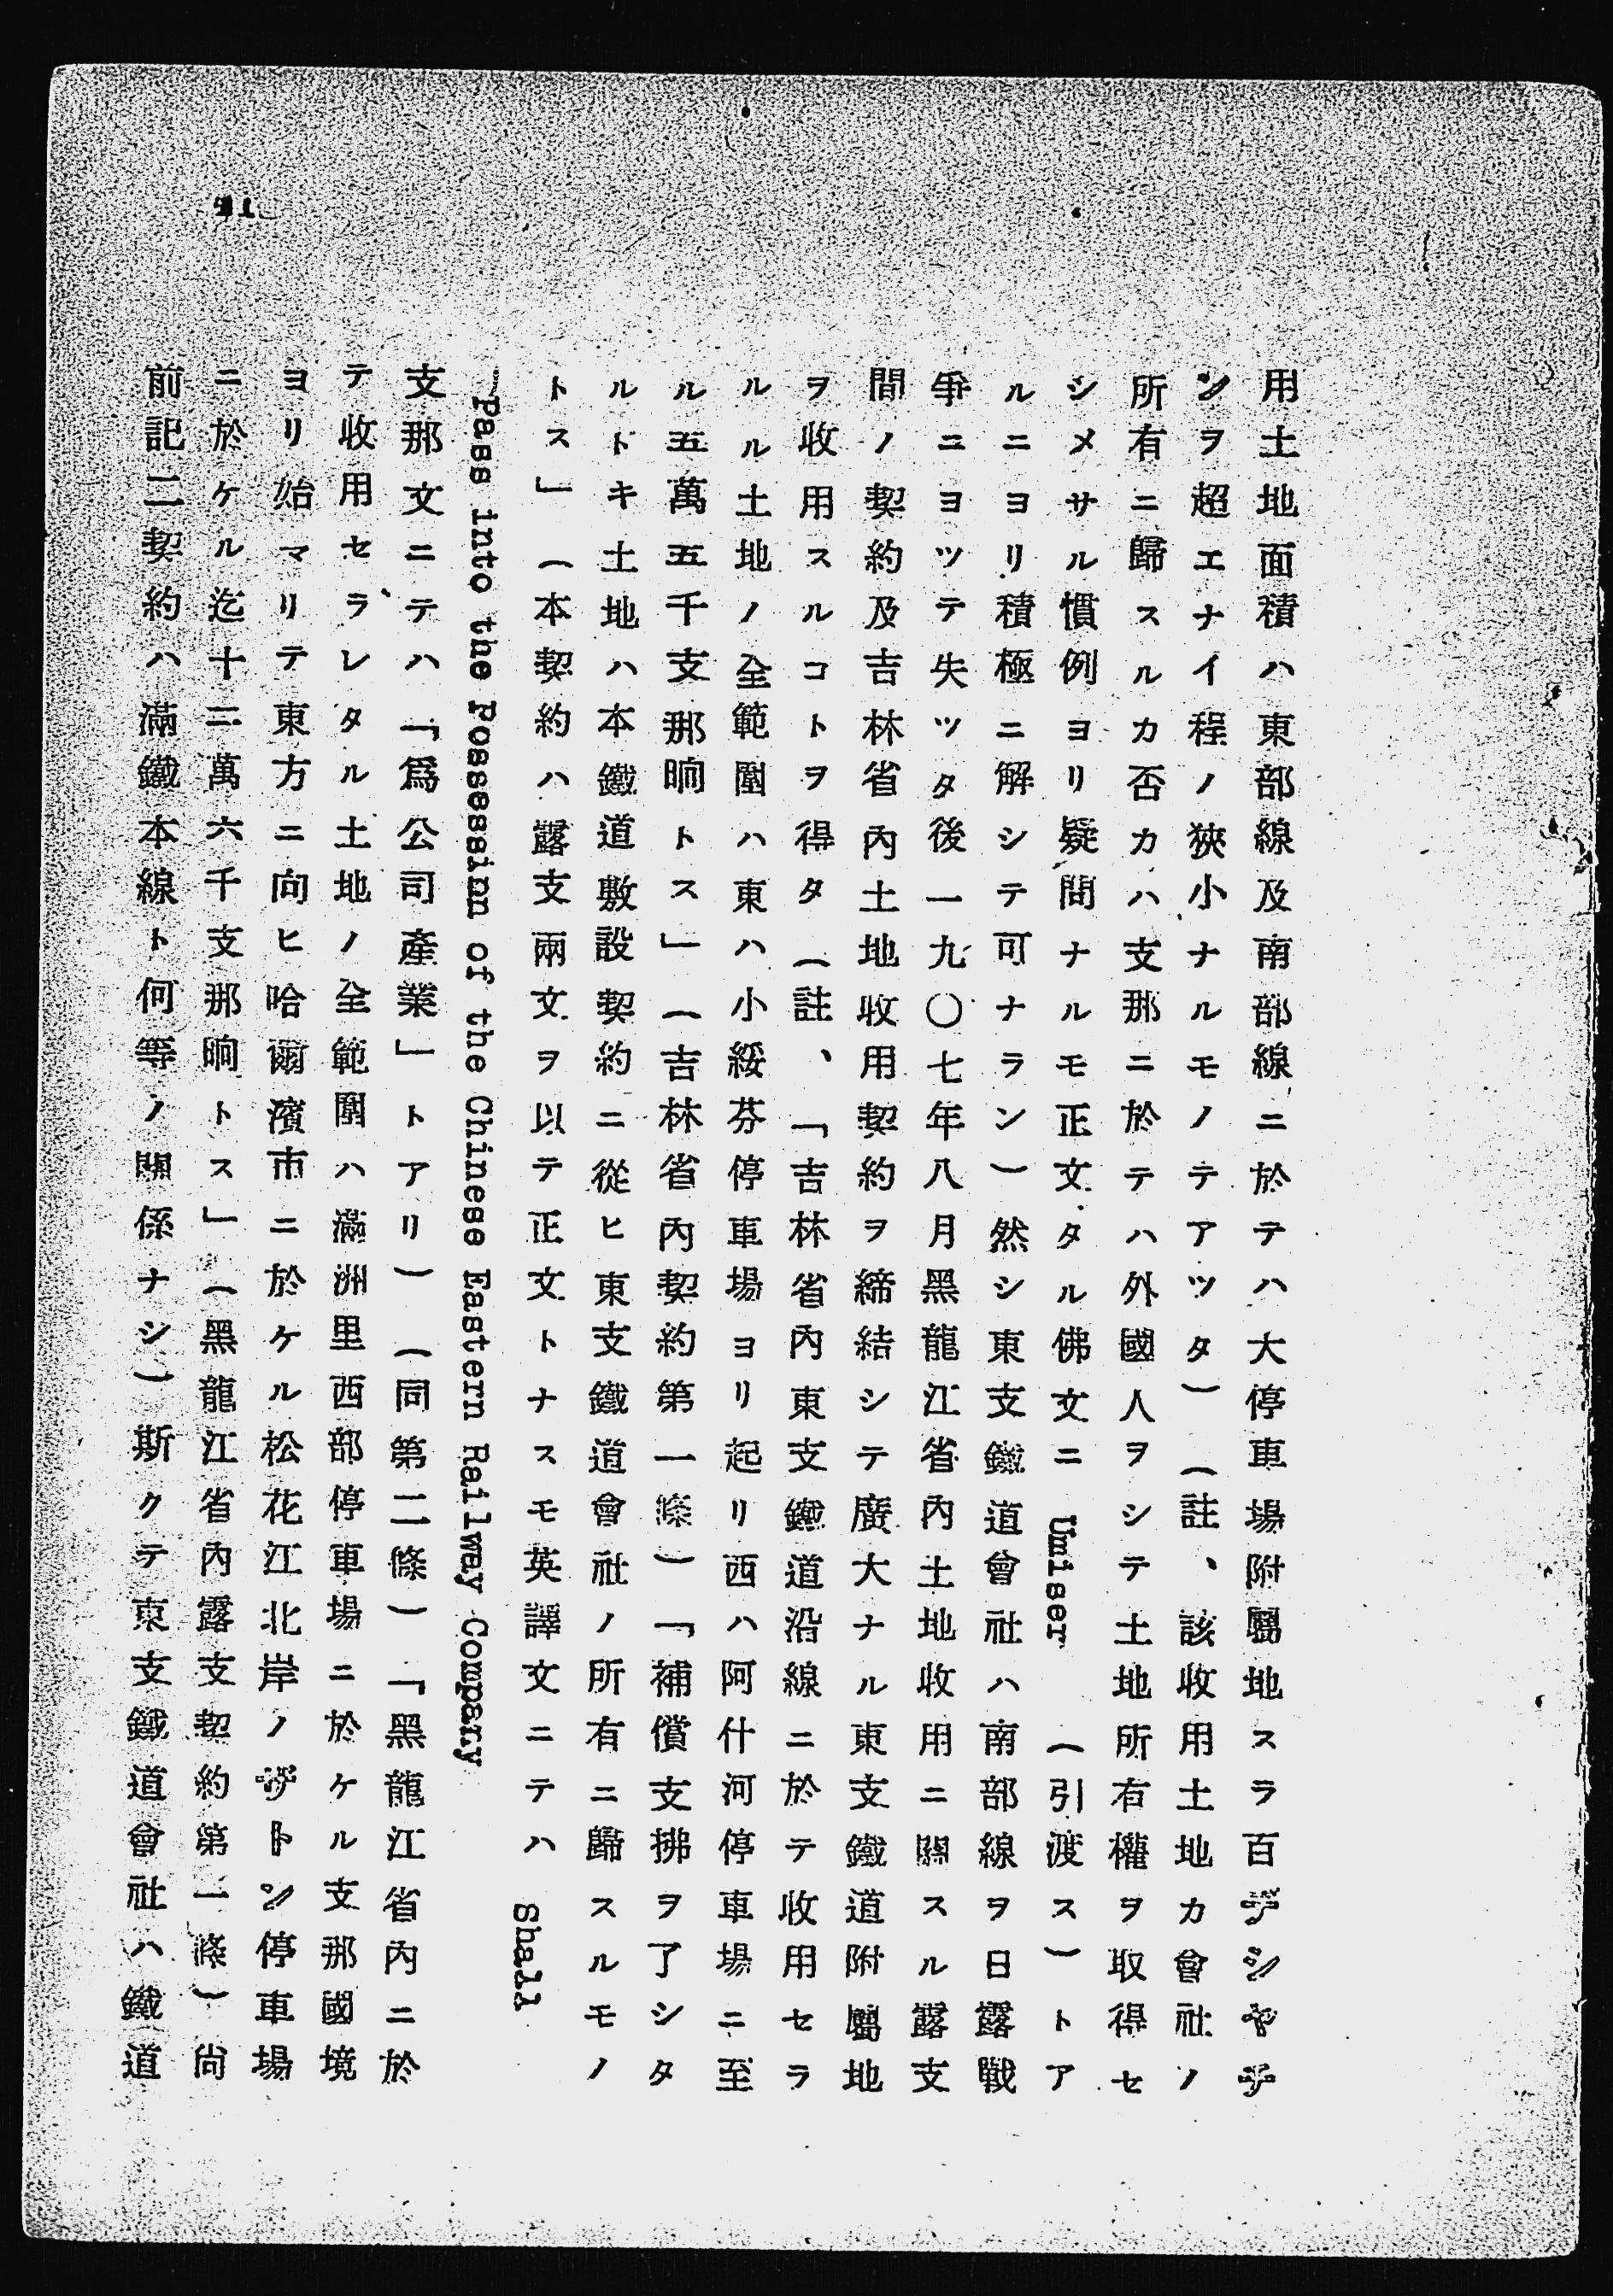 用土地面積ハ東部線及南部線ニ於テハ大停車場附屬地スラ百デシヤチ
ンヲ超エナイ程ノ狹小ナルモノテアツタ）（註、該收用土地カ會社ノ
所有ニ歸スルカ否カハ支那ニ於テハ外國人ヲシテ土地所有權ヲ取得セ
シメサル慣例ヨリ疑問ナルモ正文タル佛文ニ Umiser （引渡ス）トア
ルニヨリ積極ニ解シテ可ナラン）然シ東支鐵道會社ハ南部線ヲ日露戰
爭ニヨツテ失ツタ後一九〇七年八月黑龍江省內土地收用ニ關スル露支
間ノ契約及吉林省內土地收用契約ヲ締結シテ廣大ナル東支鐵道附屬地
ヲ收用スルコトヲ得タ（註、「吉林省內東支鐵道沿線ニ於テ收用セラ
ルル土地ノ全範圍ハ東ハ小綏芬停車場ヨリ起リ西ハ阿什河停車場ニ至
ル五萬五千支那晌トス」（吉林省內契約第一條）「補償支拂ヲ了シタ
ルトキ土地ハ本鐵道敷設契約ニ從ヒ東支鐵道會社ノ所有ニ歸スルモノ
トス」（本契約ハ露支兩文ヲ以テ正文トナスモ英譯文ニテハ Shall
Pass into the Possessinn of the Chinese Eastern Railway Company
支那文ニテハ「爲公司產業」トアリ）（同第二條）「黑龍江省內ニ於
テ收用セラレタル土地ノ全範圍ハ滿洲里西部停車場ニ於ケル支那國境
ヨリ始マリテ東方ニ向ヒ哈爾濱市ニ於ケル松花江北岸ノザトン停車場
ニ於ケル迄十三萬六千支那晌トス」（黑龍江省內露支契約第一條）尙
前記二契約ハ滿鐵本線ト何等ノ關係ナシ）斯クテ東支鐵道會社ハ鐵道